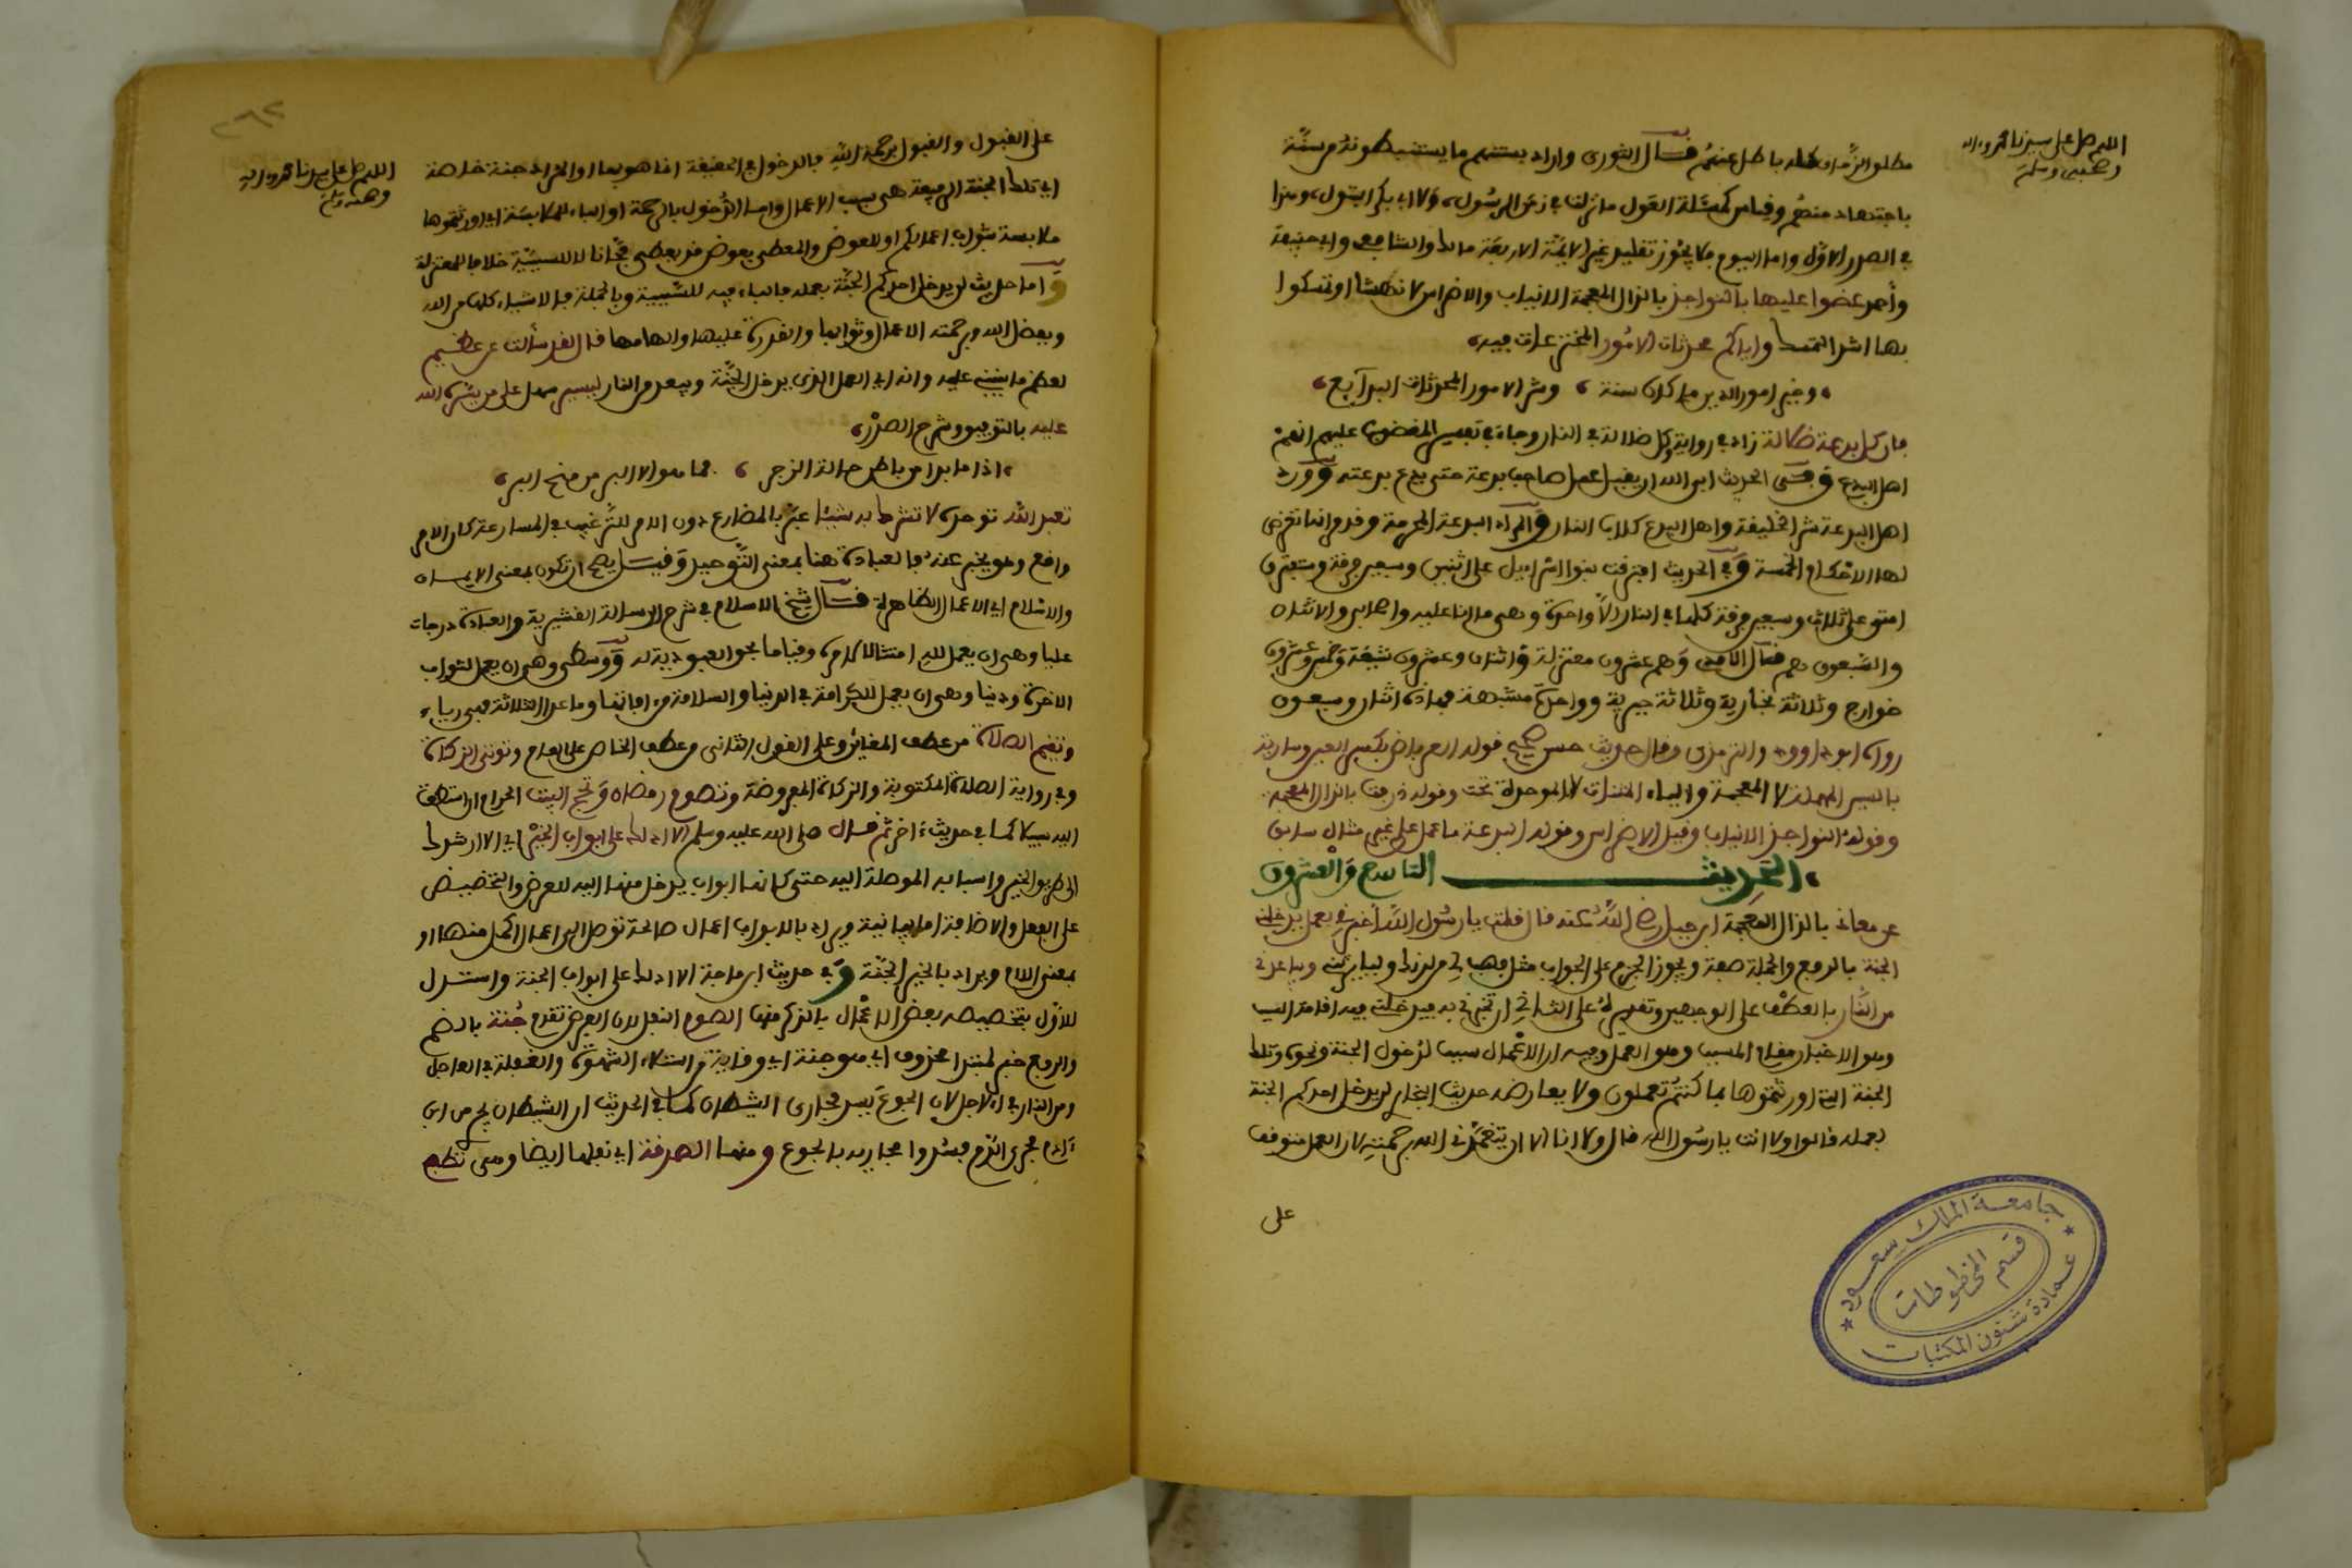 اللهم صل على سيدنا محمد واله
وصحبه وسلم
باجتهاد منهم وقياس كمسئلة العول ما نزلت في زمن الرسول، ولا ابي بكر البتول، وهذا
في الصدر الاول واما اليوم فلا يجوز تقليد غير الايمة الاربعة مالك والشافعي وابي حنيفة
وأحمد عضوا عليها بالنواجذ بالذال المعجمة الانياب والاضراس
بها اشد التمسك واياكم محدثات الامور المخترعات فيه،
، وخير امور الدين ما كان سنة ، وشر الامور المحدثات البدايع ،
فان كل بدعة ضلالة زاد في رواية وكل ضلالة في النار وجاء في تفسير المغضوب عليهم انهم
اهل البدع وفي الحديث ابى الله ان يقبل عمل صاحب بدعة حتى يدع بدعته وورد
اهل البدعة شر الخليقة واهل البدع كلاب النار والمراد البدعة المحرمة وقدم انها تعترض
لها الاحكام الخمسة وفي الحديث افترقت بنوا اسراييل على اثنين وسبعين فرقة وستفترق
امتي على ثلاث وسبعين فرقة كلها في النار الا واحدة وهي ما انا عليه واصحابي والاثنان
والسبعون هم قال وهم عشرون معتزلة واثنان وعشرون شيعة وخمس وعشرون
خوارج وثلاثة نجارية وثلاثة جبرية وواحدة مشبهة فهاذه اثنان وسبعون
رواه ابو داوود والترمذي وقال حديث حسن صحيح قوله العرباض بكسر العين وسارية
بالسين المهملة لا المعجمة والياء المثناة لا الموحدة تحت وقوله ذرفت بالذال المعجمة
وقوله النواجذ الانياب وقيل الاضراس وقوله البدعة ما عمل على غير مثال سابق
، الحديث التاسع والعشرون
عن معاذ بالذال المعجمة ابن جبل رضي الله عنه قال قلت يا رسول الله أخبرني بعمل يدخلني
الجنة بالرفع والجملة صفة ويجوز الجزم على الجواب مثل فهب لي من لدنك وليا يرثني ويباعدني
من النار بالعطف على الوجهين
وهو الاخبار مقام المسبب وهو العمل وفيه ان الاعمال سبب لدخول الجنة ونحوه وتلك
الجنة التي اورثتموها بما كنتم تعملون ولا يعارضه حديث البخاري لن يدخل احدكم الجنة
بعمله قالوا ولا انت يا رسول الله قال ولا انا الا ان يتغمدني الله برحمته لان العمل متوقف
على
جامعة الملك سعود
قسم المخطوطات
عمادة شئون المكتبات
اللهم صل على سيدنا محمد واله
وصحبه وسلم
على القبول والقبول برحمة الله فالدخول في الحقيقة انما هو بها او المراد جنة خاصة
اي تلك الجنة الرفيعة هي بسبب الاعمال واما الدخول بالرحمة او الباء للملابسة اي اورثتموها
ملابسة بثواب اعمالكم او للعوض والمعطي بعوض قد يعطي مجانا لا للسببية خلافا للمعتزلة
واما حديث لن يدخل احدكم الجنة بعمله فالباء فيه للسببية وبالجملة فالاشياء كلها من الله
وبفضل الله وبرحمته الاعمال وثوابها والقدرة عليها والهامها قال لقد سألت عن عظيم
لعظم ما ينبني عليه وانه اي العمل الذي يدخل الجنة ويبعد من النار ليسير سهل على من يسره الله
عليه بالتوفيق وشرح الصدر،
تعبد الله توحده لا تشرك به شيئا عبر بالمضارع دون الامر للترغيب في المسارعة كان الامر
واقع وهو يخبر عنه فالعبادة هنا بمعنى التوحيد وقيل يصح ان تكون بمعنى الايمان
والاسلام اي الاعمال الظاهرة قال شيخ الاسلام في شرح الرسالة القشيرية والعبادة درجات
عليا وهي ان يعمل لله امتثالا لامره وقياما بحق العبودية له ووسطى وهي ان يعمل لثواب
الاخرة ودنيا وهي ان يعمل للكرامة في الدنيا والسلامة من افاتها وما عدا الثلاثة فهي رياء
وتقيم الصلاة من عطف المغائر وعلى القول الثاني من عطف الخاص على العام وتوتي الزكاة
وفي رواية الصلاة المكتوبة والزكاة المفروضة وتصوم رمضان وتحج البيت الحرام ان استطعت
اليه سبيلا كما في حديث آخر ثم قال صلى الله عليه وسلم الا ادلك على ابواب الخير اي الا ارشدك
الى طريق الخير واسبابه الموصلة اليه حتى كانها ابواب يدخل منها اليه للعرض والتحضيض
على الفعل والاضافة اما بيانية ويراد بالابواب اعمال صالحة توصل الى اعمال اكمل منها او
بمعنى اللام ويراد بالخير الجنة وفي حديث ابن ماجة الا ادلك على ابواب الجنة واستدل
للاول بتخصيصه بعض الاعمال بالذكر منها الصوم النفل لان الفرض تقدم جنة بالضم
والرفع خبر لمبتدا محذوف اي هو جنة اي وقاية من استيلاء الشهوة والغفلة في العاجل
ومن النار في الاجل لان الجوع يسد مجاري الشيطان كما في الحديث ان الشيطان يجري من ابن
آدم مجرى الدم فسدوا مجاريه بالجوع ومنها الصدقة اي نفلها ايضا وهي تطفئ